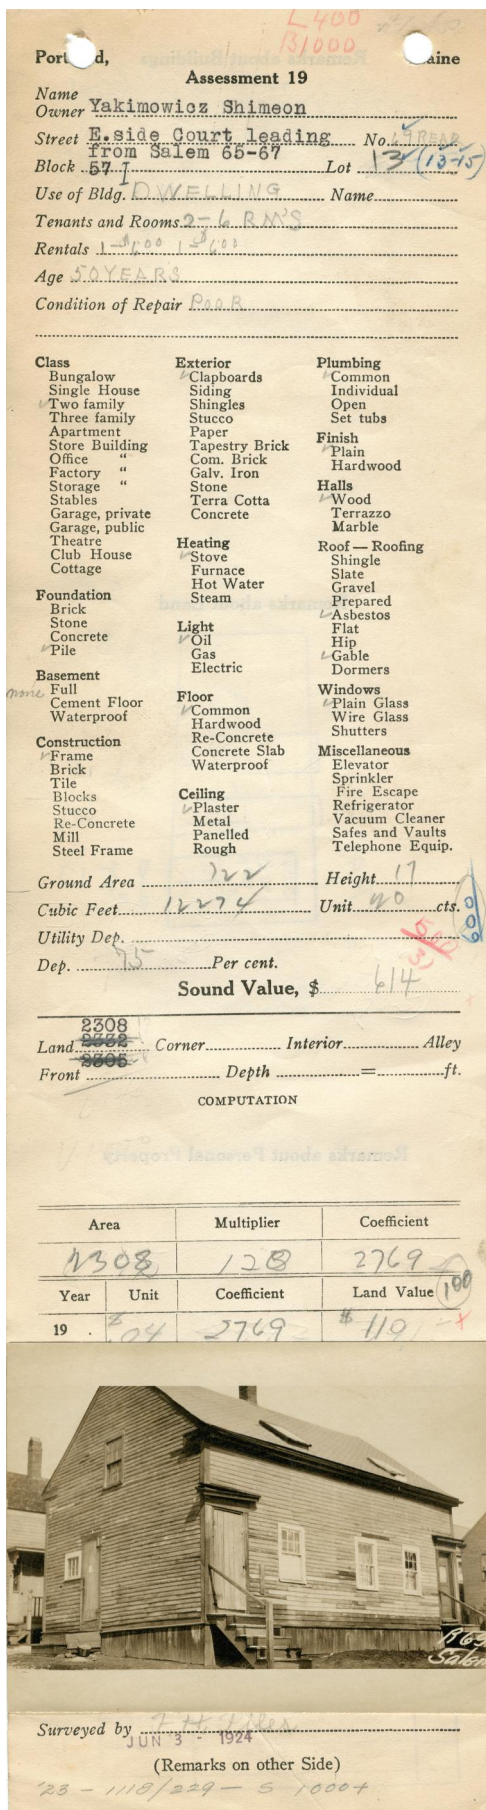 L400
B1000
Port d, aine
Assessment 19
Name
Owner Yakimowicz Shimeon
Street E.side Court leading No. 69 REAR
from Salem 65-67
Block 57 I Lot 13 (13-15)
Use of Bldg. DWELLING Name
Tenants and Rooms 2-6 RM'S
Rentals 1-$6.00 1-$6.00
Age 50 YEARS
Condition of Repair POOR
Class
Bungalow
Single House
✓Two family
Three family
Apartment
Store Building
Office "
Factory "
Storage "
Stables
Garage, private
Garage, public
Theatre
Club House
Cottage
Foundation
Brick
Stone
Concrete
✓Pile
Basement
none Full
Cement Floor
Waterproof
Construction
✓Frame
Brick
Tile
Blocks
Stucco
Re-Concrete
Mill
Steel Frame
Exterior
✓Clapboards
Siding
Shingles
Stucco
Paper
Tapestry Brick
Com. Brick
Galv. Iron
Stone
Terra Cotta
Concrete
Heating
✓Stove
Furnace
Hot Water
Steam
Light
✓Oil
Gas
Electric
Floor
✓Common
Hardwood
Re-Concrete
Concrete Slab
Waterproof
Ceiling
✓Plaster
Metal
Panelled
Rough
Plumbing
✓Common
Individual
Open
Set tubs
Finish
✓Plain
Hardwood
Halls
✓Wood
Terrazzo
Marble
Roof — Roofing
Shingle
Slate
Gravel
Prepared
✓Asbestos
Flat
Hip
✓Gable
Dormers
Windows
✓Plain Glass
Wire Glass
Shutters
Miscellaneous
Elevator
Sprinkler
Fire Escape
Refrigerator
Vacuum Cleaner
Safes and Vaults
Telephone Equip.
Ground Area 722 Height 17
Cubic Feet 12274 Unit 20 cts.
600
Utility Dep.
Dep. 75 Per cent.
Sound Value, $ 614
2308
Land 2332 Corner Interior Alley
2305
Front Depth = ft.
COMPUTATION
Remarks about Personal Property
Area Multiplier Coefficient
2308 120 2769
Year Unit Coefficient Land Value 100
19 . $.04 2769 $ 110
R 69
Salem
Surveyed by
JUN 3 - 1924
(Remarks on other Side)
'23 - 1118/229 - S 1000+